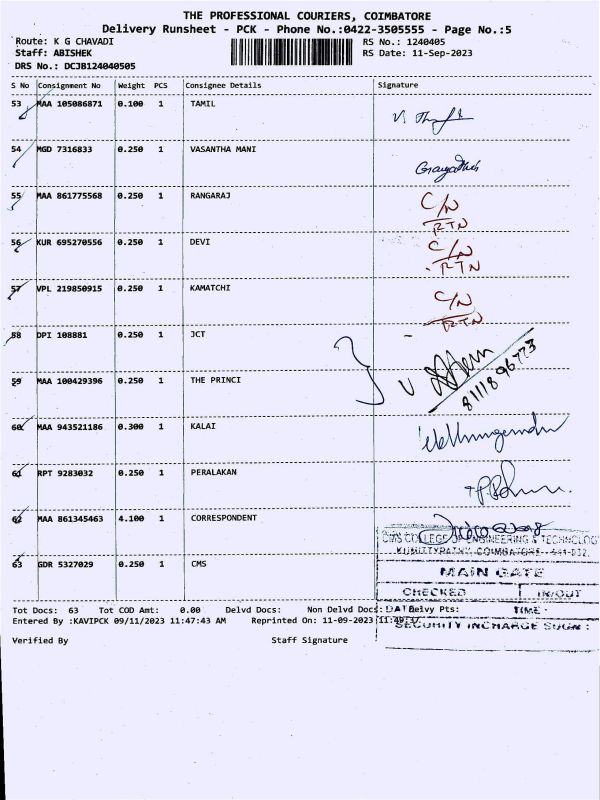 THE PROFESSIONAL COURIERS, COIMBATORE
Delivery Runsheet - PCK - Phone No.:0422-3505555 - Page No.:5
Route: K G CHAVADI RS No.: 1240405
Staff: ABISHEK RS Date: 11-Sep-2023
DRS No.: DCJB124040505
S No Consignment No Weight PCS Consignee Details Signature
53 MAA 105086871 0.100 1 TAMIL
54 MGD 7316833 0.250 1 VASANTHA MANI Gayathri
55 MAA 861775568 0.250 1 RANGARAJ C/N
RTN
56 KUR 695270556 0.250 1 DEVI C/N
RTN
57 VPL 219850915 0.250 1 KAMATCHI C/N
RTN
58 DPI 108881 0.250 1 JCT
8111896773
59 MAA 100429396 0.250 1 THE PRINCI
60 MAA 943521186 0.300 1 KALAI
61 RPT 9283032 0.250 1 PERALAKAN
62 MAA 861345463 4.100 1 CORRESPONDENT
CMS COLLEGE OF ENGINEERING & TECHNOLOG
COIMBATORE 641-032.
63 GDR 5327029 0.250 1 CMS
MAIN GATE
CHECKED IN/OUT
Tot Docs: 63 Tot COD Amt: 0.00 Delvd Docs: Non Delvd Docs: DATE Delvy Pts: TIME
Entered By :KAVIPCK 09/11/2023 11:47:43 AM Reprinted On: 11-09-2023
SECURITY INCHARGE SIGN :
Verified By Staff Signature